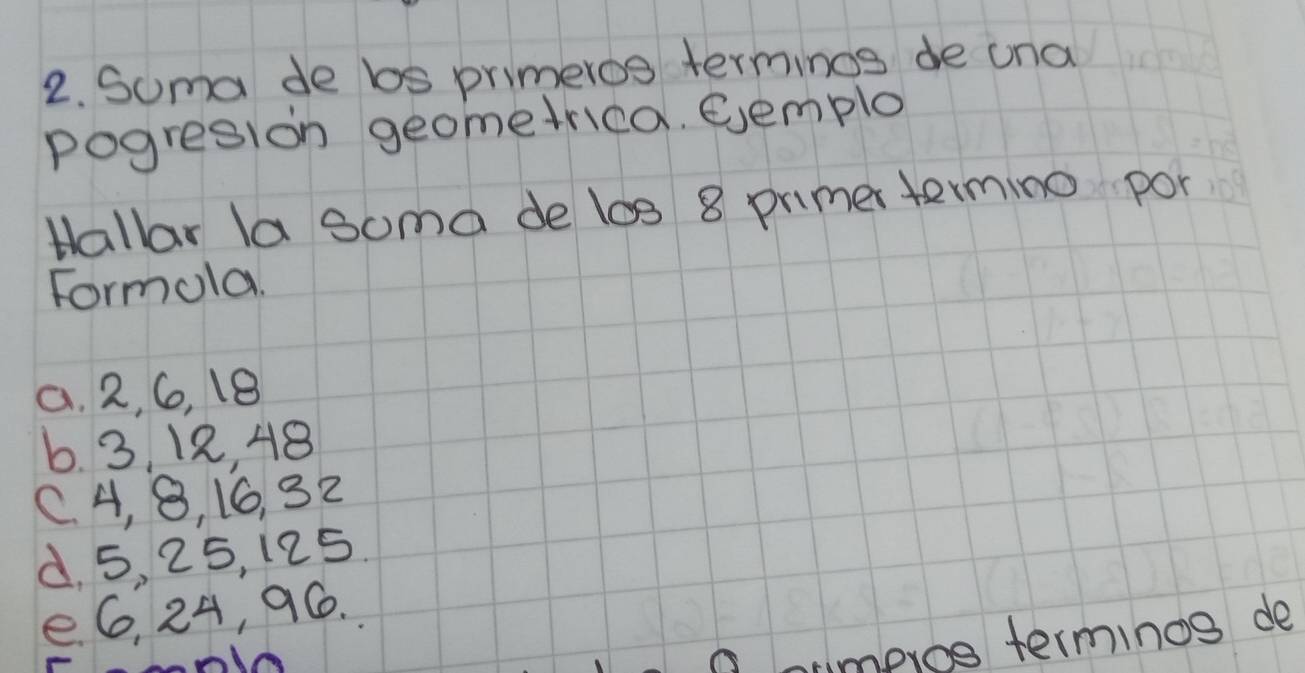 2. Suma de los primeros terminos de una
pogresión geometrica. Ejemplo
Hallar la suma de los 8 primer termino por
Formula.
a. 2, 6, 18
b. 3, 12, 48
c. 4, 8, 16, 32
d. 5, 25, 125.
e. 6, 24, 96..
terminos de